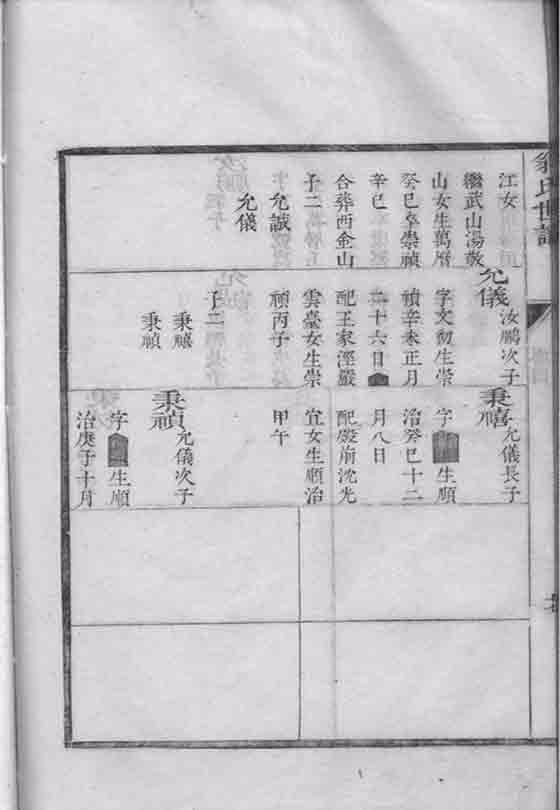 氏世譜
江女
繼武山湯敬
山女生萬曆
癸巳卒崇禎
辛巳
合葬西金山
子二
允誠
允儀
允儀
汝鵬次子
字文
生崇
禎辛未正月
二十六日
配王家涇嚴
雲臺女生崇
禎丙子
子二
秉禧
秉禎
秉禧
允儀長子
字
生順
治癸巳十二
月八日
配殿前沈光
宜女生順治
甲午
秉禎
允儀次子
字
生順
治庚子十月